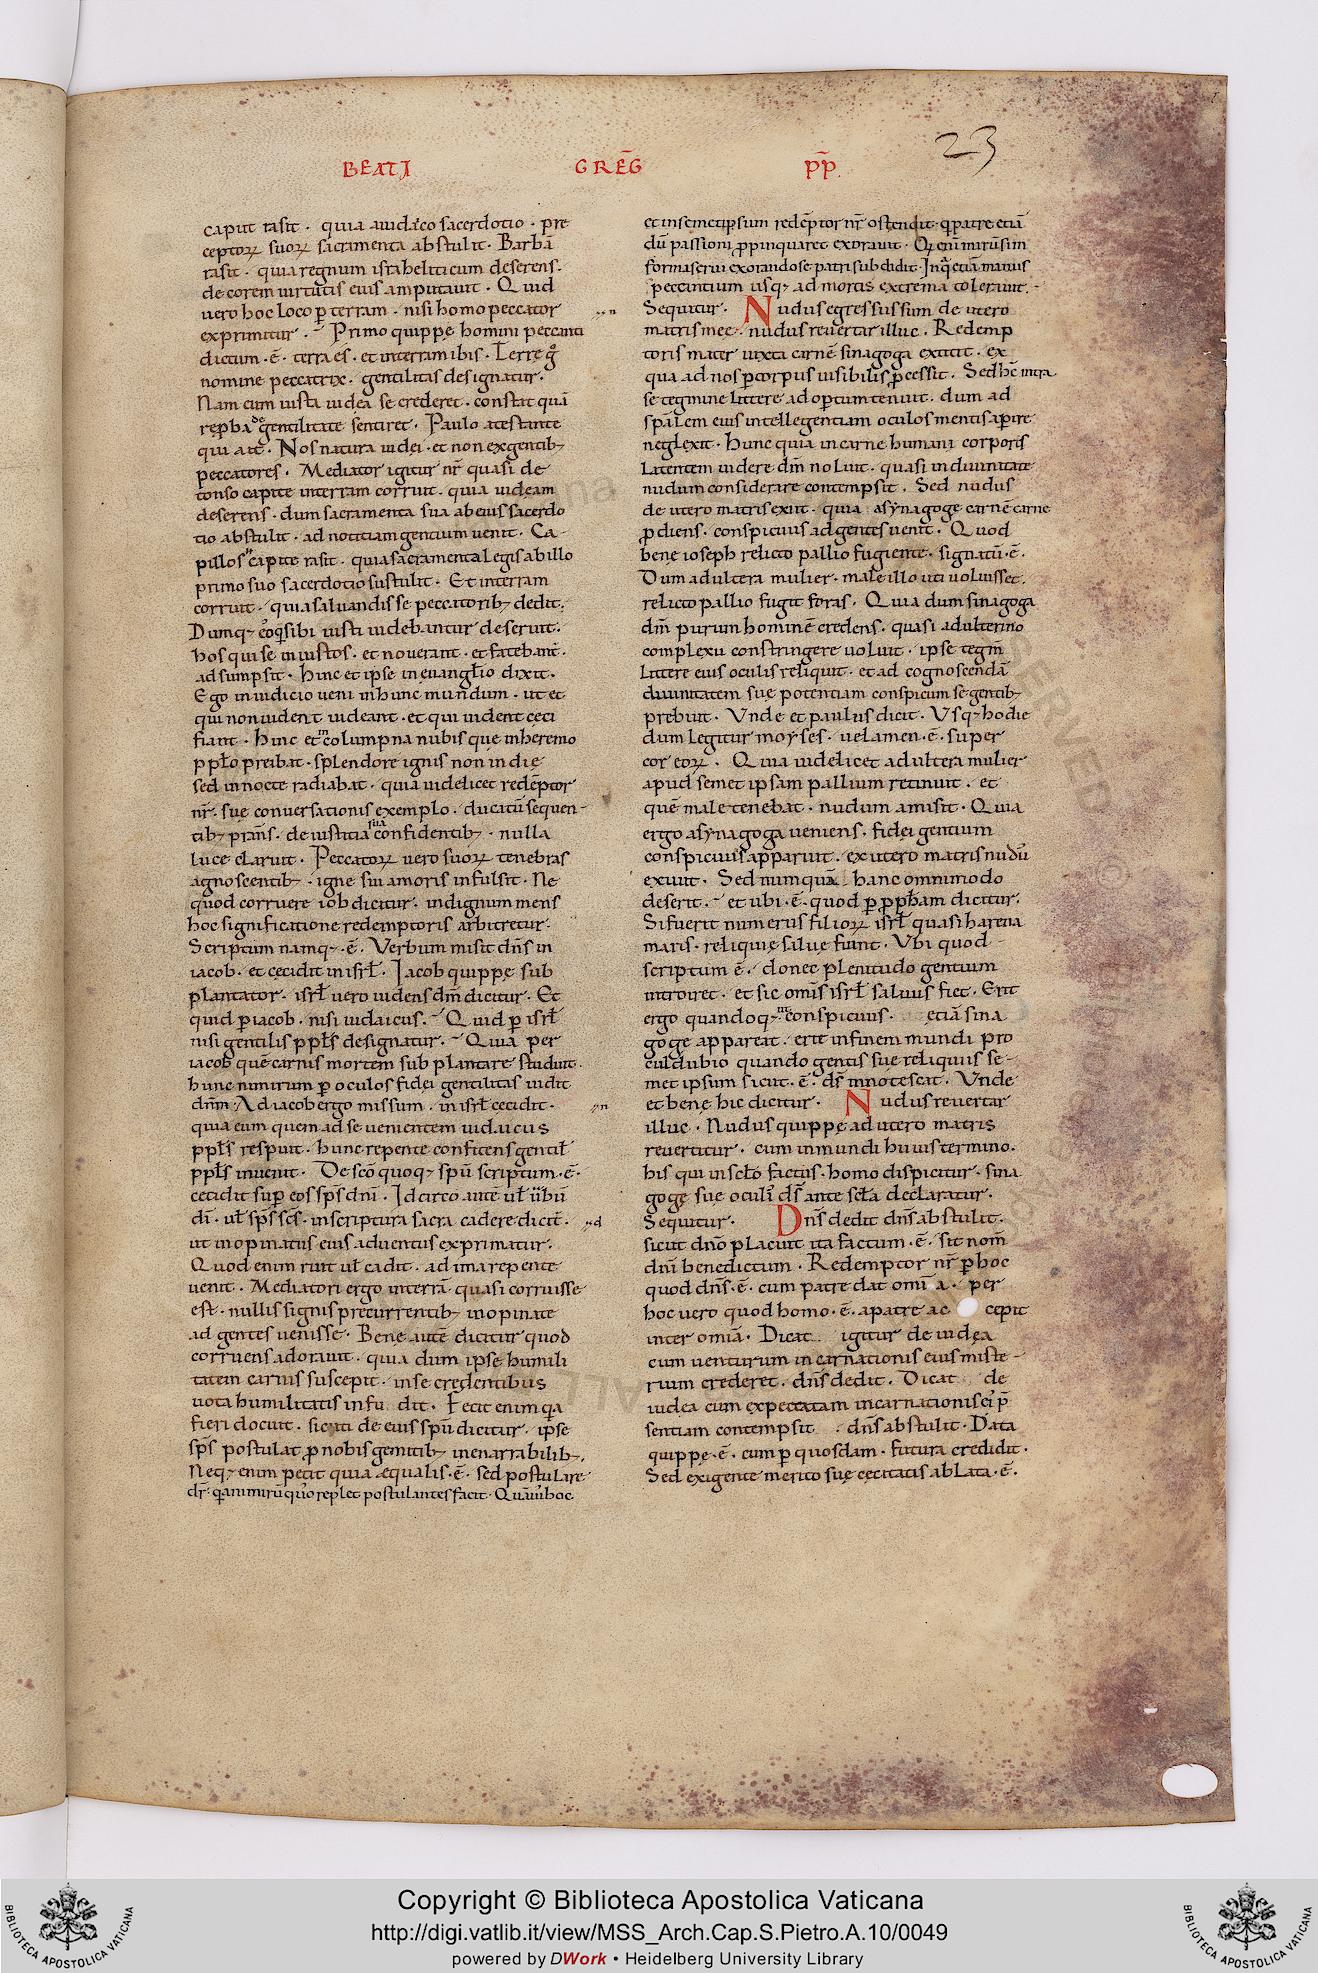 BEATI GREḠ P̄P̄.
23
caput rasit · quia a iudaico sacerdotio · pre
ceptoꝝ suoꝝ sacramenta abstulit · Barbā
rasit · quia regnum israheliticum deserens ·
decorem uirtutis eius amputauit · Quid
uero hoc loco ꝑ terram · nisi homo peccator
exprimitur · Primo quippe homini peccanti
dictum · ē · terra es · et in terram ibis · Terrę gͦ
nomine peccatrix · gentilitas designatur ·
Nam cum iusta iudea se crederet · constat quā
reꝓba de gentilitate sentiret · Paulo atestante
qui ait · Nos natura iudei · et non ex gentibꝫ
peccatores · Mediator igitur nr̄ quasi de
tonso capite in terram corruit · quia iudeam
deserens · dum sacramenta sua ab eius sacerdo
tio abstulit · ad notitiam gentium uenit · Ca
pillos n̄ capite rasit · quia sacramenta legis ab illo
primo suo sacerdotio sustulit · Et in terram
corruit · quia saluandis se peccatoribꝫ dedit ·
Dumqꝫ eos qui sibi iusti uidebantur deseruit ·
hos qui se iniustos · et nouerant · et fatebant̄ ·
adsumpsit · Hinc et ipse in euanglio dixit ·
Ego in iudicio ueni in hunc mundum · ut et
qui non uident uideant · et qui uident ceci
fiant · Hinc et columpna nubis que in heremo
ppło preibat · splendore ignis non in die
sed in nocte radiabat · quia uidelicet redēptor
nr̄ · sue conuersationis exemplo · ducatū sequen
tibꝫ pran̄s · de iustitia sua confidentibꝫ · nulla
luce claruit · Peccatoꝝ uero suoꝝ tenebras
agnoscentibꝫ · igne sui amoris infulsit · Ne
quod corruere iob dicitur · indignum mens
hoc significatione redemptoris arbitretur ·
Scriptum namqꝫ · ē · Verbum misit dn̄s in
iacob · et cecidit in isrł · Iacob quippe sub
plantator · isrł uero uidens dm̄ dicitur · Et
quid ꝑ iacob · nisi iudaicus · Quid ꝑ isrł
nisi gentilis ppłs designatur · Quia per
iacob quē carnis mortem subplantare studuit ·
hunc nimirum ꝑ oculos fidei gentilitas uidit
dn̄m · Ad iacob ergo missum · in isrł cecidit ·
quia eum quem ad se uenientem iudaicus
ppłs respuit · hunc repente confitens gentił
ppłs inuenit · De scō quoqꝫ spū scriptum · ē ·
cecidit sup̄ eos sp̄s dn̄i · Idcirco autē uł ūbū
di · uł sp̄s sc̄s · in scriptura sacra cadere dicit̄ ·
ut inopinatus eius aduentus exprimatur ·
Quod enim ruit uł cadit · ad ima repente
uenit · Mediatori ergo in terrā quasi corruisse
est · nullis signis precurrentibꝫ inopinate
ad gentes uenisse · Bene autē dicitur quod
corruens adorauit · quia dum ipse humili
tatem carnis suscepit · in se credentibus
uota humilitatis infu dit · Fecit enim qͣ
fieri docuit · sicuti de eius spū dicitur · ipse
sp̄s postulat ꝓ nobis gemitibꝫ inenarrabilibꝫ ·
Neqꝫ enim petit quia equalis · ē · sed postulare
dr̄ · replet postulantes facit · Quāuis hoc
et in semetipsum redēptor nr̄ ostendit · patrē etiā
dū passioni ꝓpinquaret exorauit · enī mirū si in
forma serui exorando se patri subdidit · In qͣ etiā manus
peccantium usqꝫ ad mortis extrema tolerauit ·
Sequitur · Nudus egressus sum de utero
matris mee · nudus reuertar illuc · Redemp
toris mater iuxta carnē sinagoga extitit · ex
qua ad nos ꝑ corpus uisibilis ꝓcessit · Sed hc̄ intra
se tegmine littere adoꝑtum tenuit · dum ad
spālem eius intellegentiam oculos mentis aꝑire
neglexit · Hunc quia in carne humani corporis
latentem uidere dm̄ noluit · quasi in diuinitate
nudum considerare contempsit · Sed nudus
de utero matris exiit · quia a synagoge carnē carne
ꝓdiens · conspicuus ad gentes uenit · Quod
bene ioseph relicto pallio fugiente · signatū · ē ·
Dum adultera mulier · male illo uti uoluisset ·
relicto pallio fugit foras · Quia dum sinagoga
dm̄ purum hominē credens · quasi adulterino
complexu constringere uoluit · ipse tegm̄
littere eius oculis reliquit · et ad cognoscendā
diuinitatem sue potentiam conspicuum se gentibꝫ
prebuit · Vnde et paulus dicit · Vsqꝫ hodie
dum legitur moyses · uelamen · ē · super
cor eoꝝ · Quia uidelicet adultera mulier
apud semet ipsam pallium retinuit · et
quē male tenebat · nudum amisit · Quia
ergo a synagoga ueniens · fidei gentium
conspicuus apparuit · ex utero matris nudus
exiuit · Sed numquā hanc omnimodo
deserit · et ubi · ē · quod ꝑ ꝓpħam dicitur ·
Si fuerit numerus filioꝝ isrł quasi harena
maris · reliquię saluę fiunt · Vbi quod
scriptum ē · donec plenitudo gentium
introiret · et sic omīs isrł saluus fiet · Erit
ergo quandoqꝫ conspicuus · etiā sina
goge appareat · erit in finem mundi pro
culdubio quando gentis sue reliquiis se
met ipsum sicut · ē · ds̄ innotescat · Vnde
et bene hic dicitur · Nudus reuertar
illuc · Nudus quippe ad utero matris
reuertitur · cum in mundi huius termino ·
his qui in sclo factus · homo dispicitur · sina
goge sue oculis ds̄ ante scla declaratur ·
Sequitur · Dn̄s dedit dn̄s abstulit ·
sicut dn̄o placuit ita factum · ē · sit nom̄
dn̄i benedictum · Redemptor nr̄ ꝑ hoc
quod dn̄s · ē · cum patre dat omī a · per
hoc uero quod homo · ē · a patre ac cepit
inter omīa · Dicat igitur de iudea
cum uenturum incarnationis eius miste
rium crederet · dn̄s dedit · Dicat de
iudea cum expectatam incarnationis ei' p̄
sentiam contempsit · dn̄s abstulit · Data
quippe · ē · cum ꝑ quosdam · futura credidit ·
Sed exigente merito suę cecitatis ablata · ē ·
Copyright © Biblioteca Apostolica Vaticana
http://digi.vatlib.it/view/MSS_Arch.Cap.S.Pietro.A.10/0049
powered by DWork • Heidelberg University Library
BIBLIOTECA APOSTOLICA VATICANA
BIBLIOTECA APOSTOLICA VATICANA